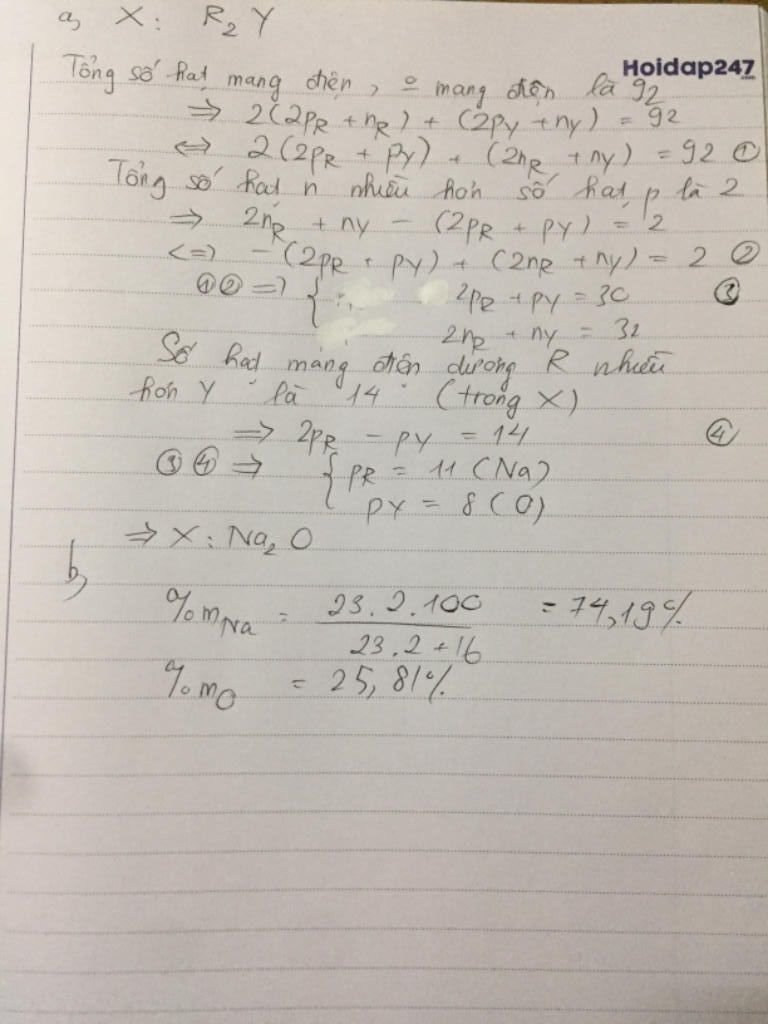 a, X: R₂Y
Hoidap247.com
Tổng số hạt mang điện, o mang điện là 92
=> 2(2pR + nR) + (2pY + nY) = 92
<=> 2(2pR + pY) + (2nR + nY) = 92 ①
Tổng số hạt n nhiều hơn số hạt p là 2
=> 2nR + nY - (2pR + pY) = 2
<=> -(2pR + pY) + (2nR + nY) = 2 ②
①② => { 2pR + pY = 30 ③
2nR + nY = 32
Số hạt mang điện dương R nhiều
hơn Y là 14 (trong X)
=> 2pR - pY = 14 ④
③④ => { pR = 11 (Na)
pY = 8 (O)
=> X: Na₂O
b,
%mNa = 23.2.100 / 23.2+16 = 74,19%
%mO = 25,81%